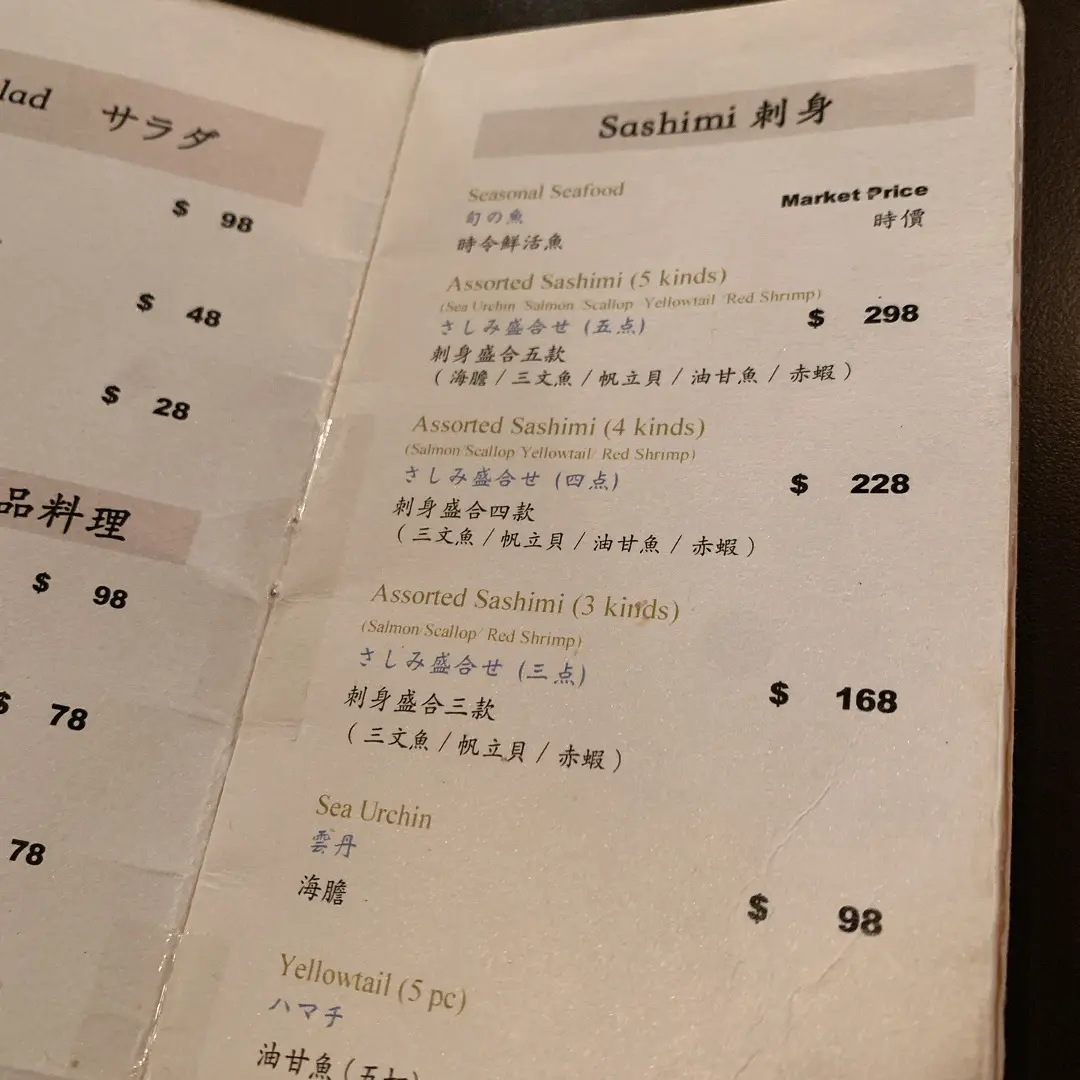 サラダ
$ 98
$ 48
$ 28
品料理
$ 98
$ 78
78
Sashimi 刺身
Seasonal Seafood
旬の魚
時令鮮活魚
Market Price
時價
Assorted Sashimi (5 kinds)
(Sea Urchin/Salmon/Scallop/Yellowtail/Red Shrimp)
さしみ盛合せ (五点)
刺身盛合五款
(海膽/三文魚/帆立貝/油甘魚/赤蝦)
$ 298
Assorted Sashimi (4 kinds)
(Salmon/Scallop/Yellowtail/Red Shrimp)
さしみ盛合せ (四点)
刺身盛合四款
(三文魚/帆立貝/油甘魚/赤蝦)
$ 228
Assorted Sashimi (3 kinds)
(Salmon/Scallop/Red Shrimp)
さしみ盛合せ (三点)
刺身盛合三款
(三文魚/帆立貝/赤蝦)
$ 168
Sea Urchin
雲丹
海膽
$ 98
Yellowtail (5 pc)
ハマチ
油甘魚(五